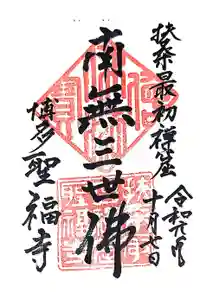 扶桑最初禅窟
令和年
十月日
南無三世佛
博多聖福寺